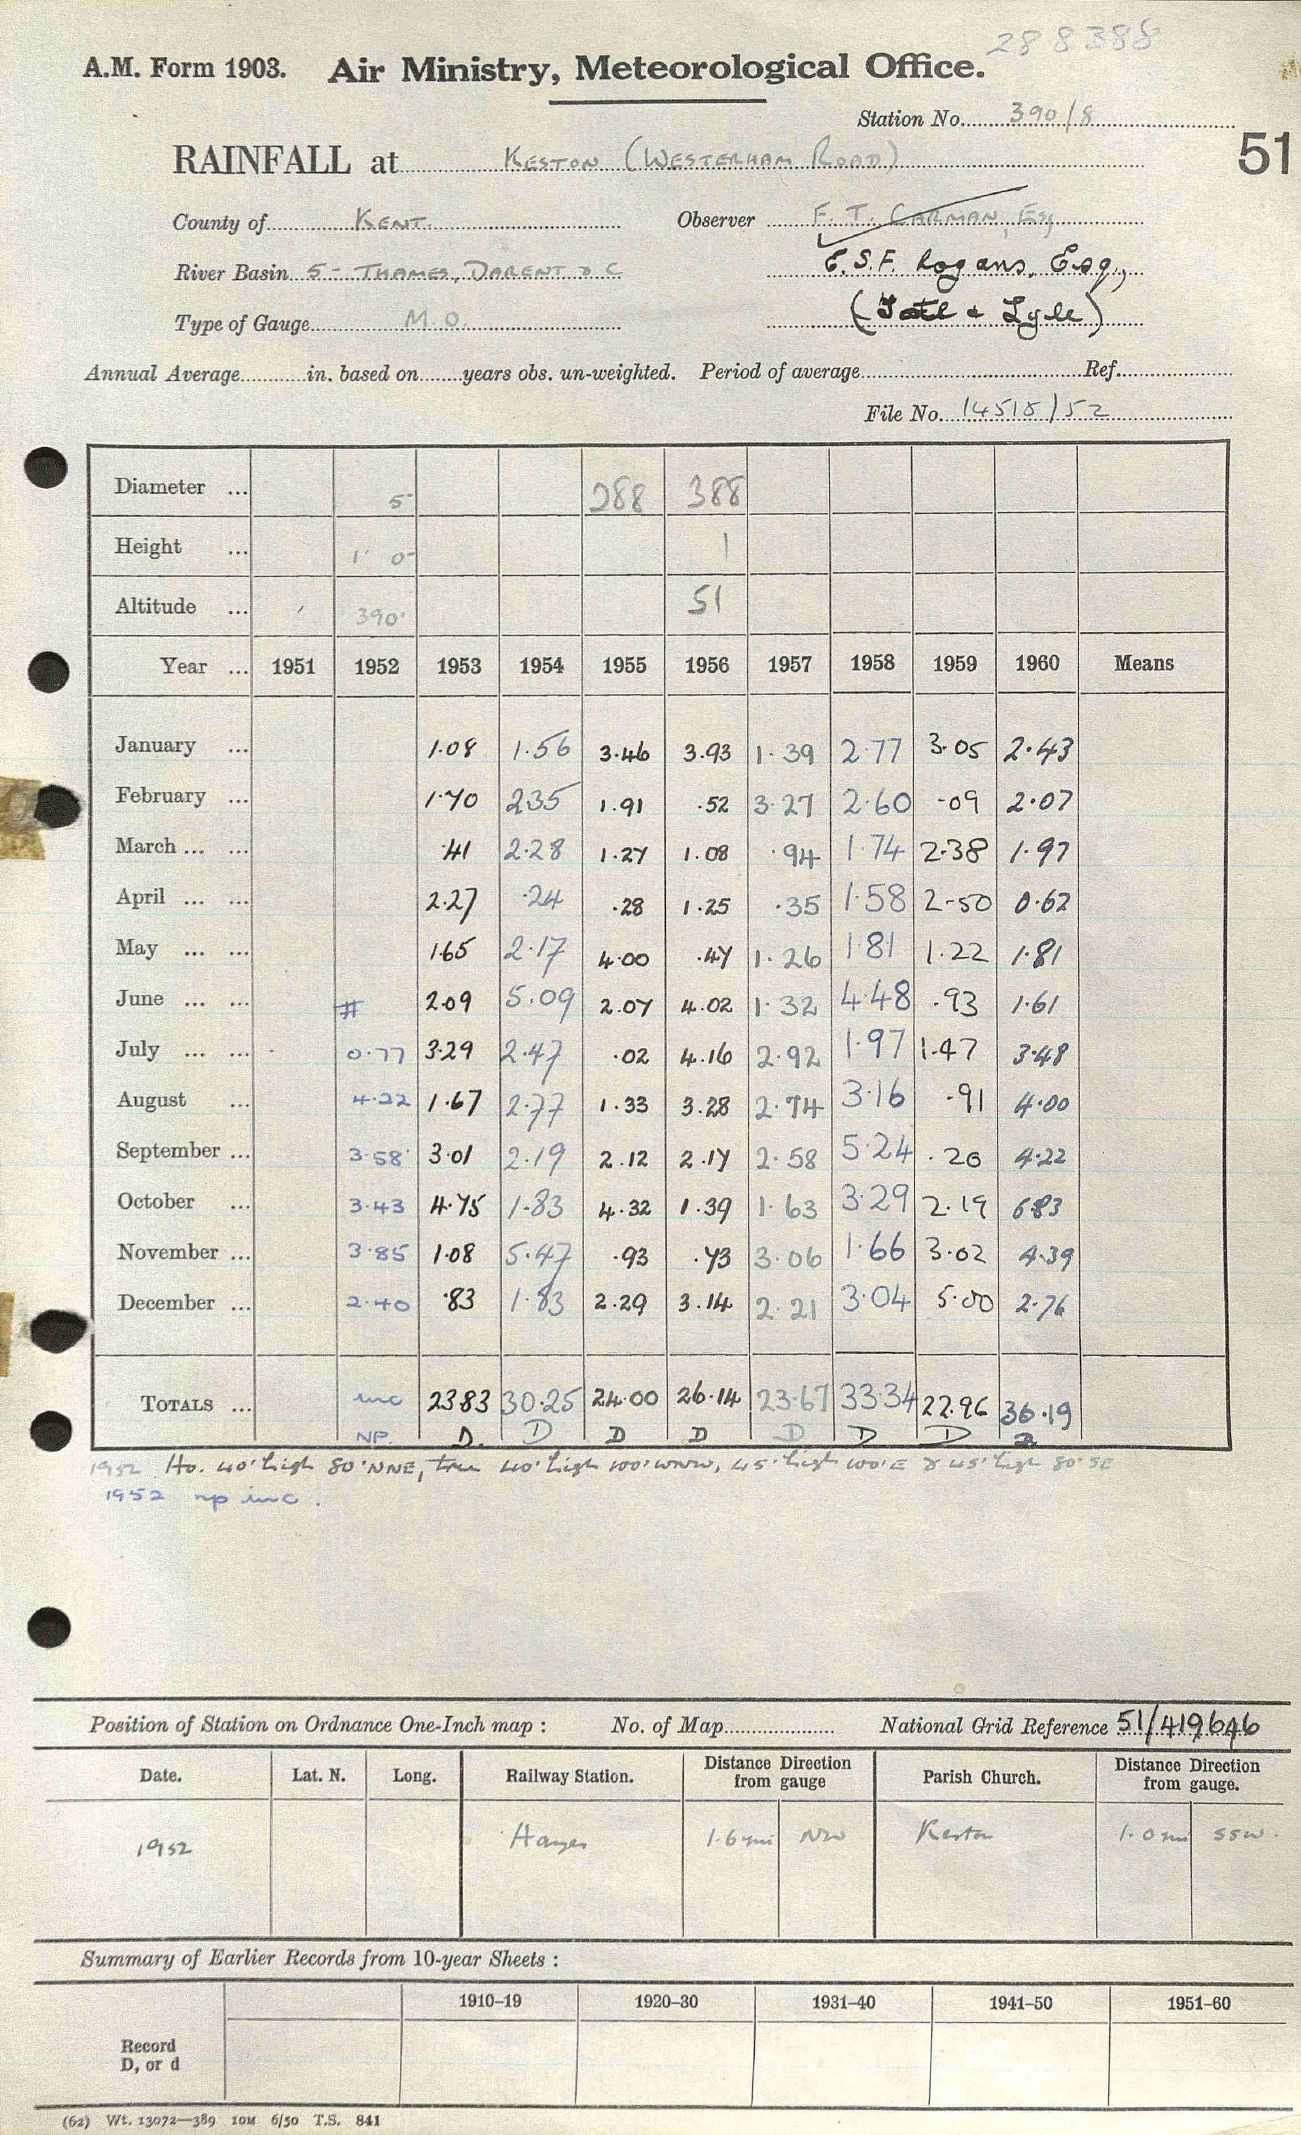 288388
A.M. Form 1903. Air Ministry, Meteorological Office.
Station No. 390/8
51
RAINFALL at KESTON (WESTERHAM ROAD)
County of KENT. Observer F. T. CARMAN, Esq
River Basin 5 - THAMES, DARENT & C E.S.F. Logans, Esq.,
Type of Gauge M.O. (Tate & Lyle)
Annual Average in. based on years obs. un-weighted. Period of average Ref.
File No. 14515/52
Diameter ... 5 288 388
Height ... 1' 0" 1
Altitude ... 390' 51
Year ... 1951 1952 1953 1954 1955 1956 1957 1958 1959 1960 Means
January ... 1.08 1.56 3.46 3.93 1.39 2.77 3.05 2.43
February ... 1.70 2.35 1.91 .52 3.27 2.60 .09 2.07
March ... ... .41 2.28 1.27 1.08 .94 1.74 2.38 1.97
April ... ... 2.27 .24 .28 1.25 .35 1.58 2.50 0.62
May ... ... 1.65 2.17 4.00 .47 1.26 1.81 1.22 1.81
June ... ... # 2.09 5.09 2.07 4.02 1.32 4.48 .93 1.61
July ... ... 0.77 3.29 2.47 .02 4.16 2.92 1.97 1.47 3.48
August ... 4.22 1.67 2.77 1.33 3.28 2.74 3.16 .91 4.00
September ... 3.58 3.01 2.19 2.12 2.17 2.58 5.24 .20 4.22
October ... 3.43 4.75 1.83 4.32 1.39 1.63 3.29 2.19 6.83
November ... 3.85 1.08 5.47 .93 .73 3.06 1.66 3.02 4.39
December ... 2.40 .83 1.83 2.29 3.14 2.21 3.04 5.00 2.76
TOTALS ... inc 23.83 30.25 24.00 26.14 23.67 33.34 22.96 36.19
NP. D. D D D D D D D
1952 Ho. 40' high 80' NNE, tree 40' high 100' WNW, 45' high 100' E & 45' high 80' SE
1952 np inc.
Position of Station on Ordnance One-Inch map : No. of Map National Grid Reference 51/419646
Date. Lat. N. Long. Railway Station. Distance Direction from gauge Parish Church. Distance Direction from gauge.
1952 Hayes 1.6 mi NW Keston 1.0 mi SSW.
Summary of Earlier Records from 10-year Sheets :
1910–19 1920–30 1931–40 1941–50 1951–60
Record
D, or d
(62) Wt. 13072—389 10M 6/50 T.S. 841